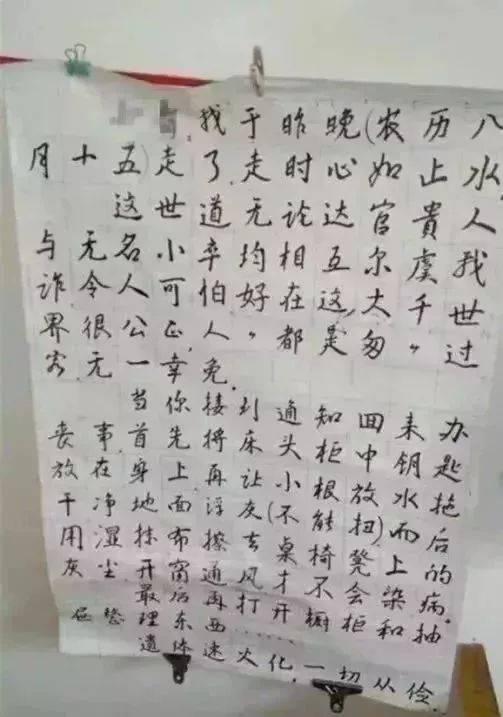 找于昨晚(农历八
月十五)走了走时心如止水
这世道无论达官贵人
与无名小卒均相互尔虞我
诈令人可怕好在这大千世
界很公正人"都是匆匆"过
客无一幸免.
当你接到通知回来办
丧事首先将床头柜中钥匙
放在身上再让小根放水拖
干净地面浮灰(不能扭)而后
用湿抹布擦去桌椅凳上的
灰尘开窗通风才不会染病.
最后再打开橱柜和抽
屉整理东西……
遗体速火化,一切从俭.